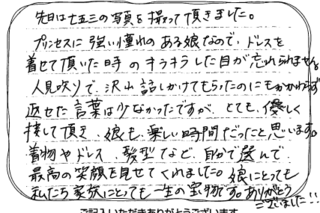 先日は七五三の写真を撮って頂きました。
プリンセスに強い憧れのある娘なので、ドレスを
着せて頂いた時のキラキラした目が忘れられません。
人見知りで、沢山話しかけてもらったのにもかかわらず
返せた言葉は少なかったですが、とても、優しく
接して頂き、娘も楽しい時間だったと思います。
着物やドレス、髪型など、自分で選んで、
最高の笑顔を見せてくれました。娘にとっても
私たち家族にとっても一生の宝物です。ありがとう
ございました!!
ご記入いただきありがとうございます